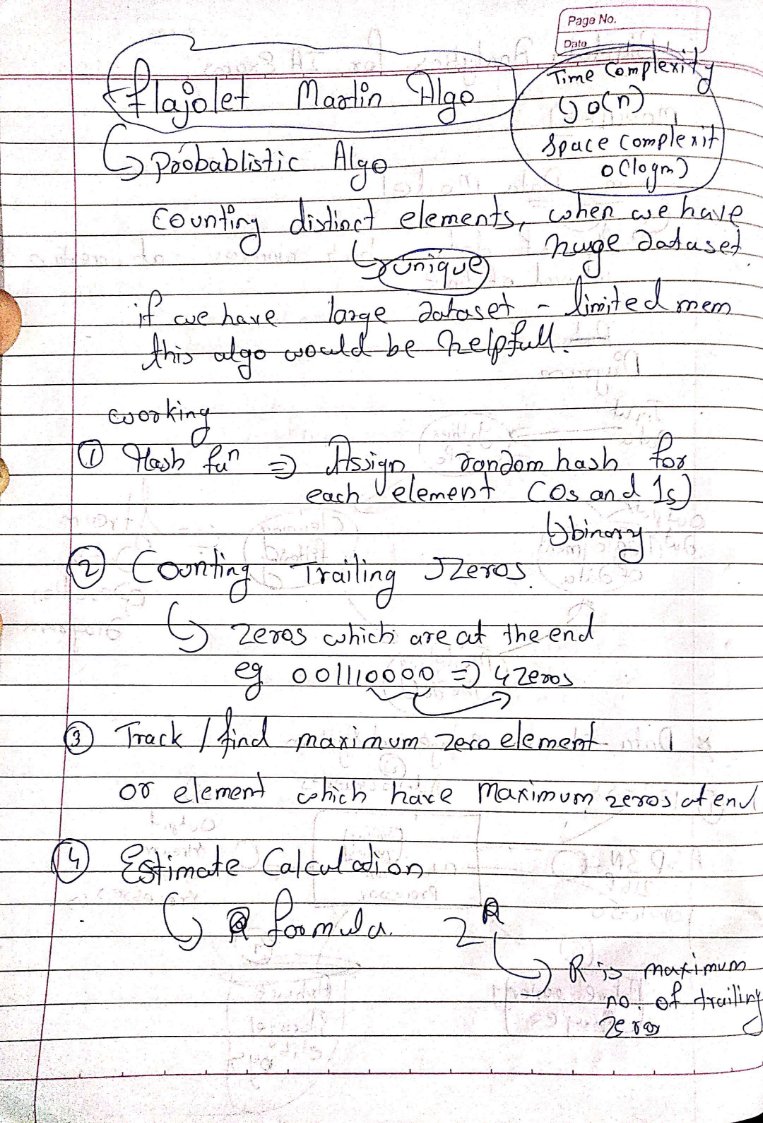 Page No.
Date
Flajolet Martin Algo
Time Complexity
↳ O(n)
Space Complexit
O(logm)
↳ Probablistic Algo
Counting distinct elements, when we have
huge dataset
↳ unique
if we have large dataset - limited mem
this algo would be helpfull.
working
① Hash fuⁿ ⇒ Assign random hash for
each element (0s and 1s)
↳ binary
② Counting Trailing Zeros.
↳ zeros which are at the end
eg 001110000 ⇒ 4 zeros
③ Track / find maximum zero element.
or element which have maximum zeros at end
④ Estimate Calculation
↳ formula. 2^R
↳ R is maximum
no. of trailing
zeros